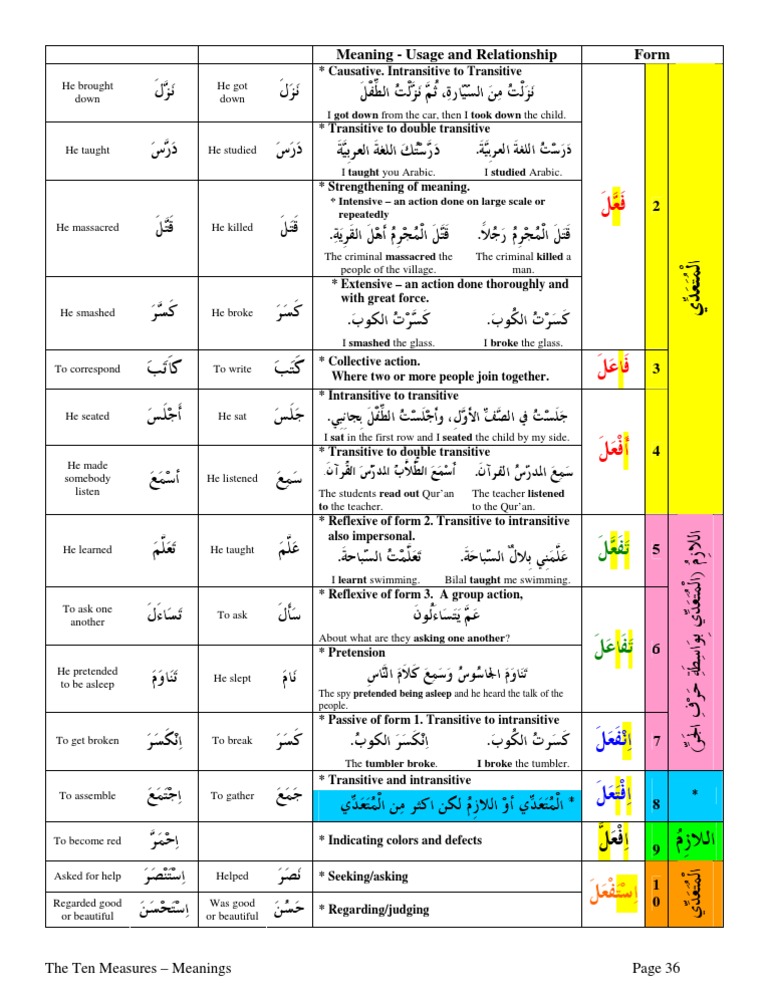 Meaning - Usage and Relationship Form
* Causative. Intransitive to Transitive
He brought down نَزَّلَ He got down نَزَلَ
نَزَلْتُ مِنَ السَّيَّارةِ، ثُمَّ نَزَّلْتُ الطِّفْلَ
I got down from the car, then I took down the child.
* Transitive to double transitive
He taught دَرَّسَ He studied دَرَسَ
دَرَسْتُ اللغةَ العربيَّةَ. دَرَّسْتُكَ اللغةَ العربِيَّةَ
I taught you Arabic. I studied Arabic.
* Strengthening of meaning.
* Intensive – an action done on large scale or
repeatedly
فَعَّلَ 2
He massacred قَتَّلَ He killed قَتَلَ
قَتَلَ الْمُجْرِمُ رَجُلاً. قَتَّلَ الْمُجْرِمُ أَهْلَ القَريَةِ.
The criminal massacred the The criminal killed a
people of the village. man.
الْمُتَعَدِّي
* Extensive – an action done thoroughly and
with great force.
He smashed كَسَّرَ He broke كَسَرَ
كَسَرْتُ الكُوبَ. كَسَّرْتُ الكوبَ.
I smashed the glass. I broke the glass.
To correspond كاَتَبَ To write كَتَبَ
* Collective action.
Where two or more people join together.
فَاعَلَ 3
* Intransitive to transitive
He seated أَجْلَسَ He sat جَلَسَ
جَلَسْتُ في الصَّفِّ الأوَّلِ، وأجْلَسْتُ الطِّفْلَ بِجانِبي.
I sat in the first row and I seated the child by my side.
أَفْعَلَ 4
* Transitive to double transitive
He made somebody listen أسْمَعَ He listened سَمِعَ
سَمِعَ المدرِّسُ القرآنَ. أسْمَعَ الطُّلاَّبُ المدرِّسَ القُرآنَ.
The students read out Qur'an The teacher listened
to the teacher. to the Qur'an.
* Reflexive of form 2. Transitive to intransitive
also impersonal.
He learned تَعَلَّمَ He taught عَلَّمَ
عَلَّمَنِي بِلالٌ السِّباحَةَ. تَعَلَّمْتُ السِّباحةَ.
I learnt swimming. Bilal taught me swimming.
تَفَعَّلَ 5
اللازِمُ (الْمُتَعَدِّي بِوَاسِطَةِ حَرْفِ الجَرِّ)
* Reflexive of form 3. A group action,
To ask one another تَسَاءَلَ To ask سَأَلَ
عَمَّ يَتَسَاءَلُونَ
About what are they asking one another?
تَفَاعَلَ 6
* Pretension
He pretended to be asleep تَنَاوَمَ He slept نَامَ
تَنَاوَمَ الجَاسُوسُ وَسَمِعَ كَلاَمَ النَّاسِ
The spy pretended being asleep and he heard the talk of the
people.
* Passive of form 1. Transitive to intransitive
To get broken اِنْكَسَرَ To break كَسَرَ
كَسَرتُ الكُوبَ. اِنْكَسَرَ الكوبُ.
The tumbler broke. I broke the tumbler.
اِنْفَعَلَ 7
* Transitive and intransitive
To assemble اِجْتَمَعَ To gather جَمَعَ
* الْمُتَعَدِّي أوْ اللازِمُ لَكن اكثر مِن الْمُتَعَدِّي
اِفْتَعَلَ 8 *
To become red اِحْمَرَّ
* Indicating colors and defects
اِفْعَلَّ 9 اللازِمُ
Asked for help اِسْتَنْصَرَ Helped نَصَرَ
* Seeking/asking
اِسْتَفْعَلَ 10 الْمُتَعَدِّي
Regarded good or beautiful اِسْتَحْسَنَ Was good or beautiful حَسُنَ
* Regarding/judging
The Ten Measures – Meanings Page 36